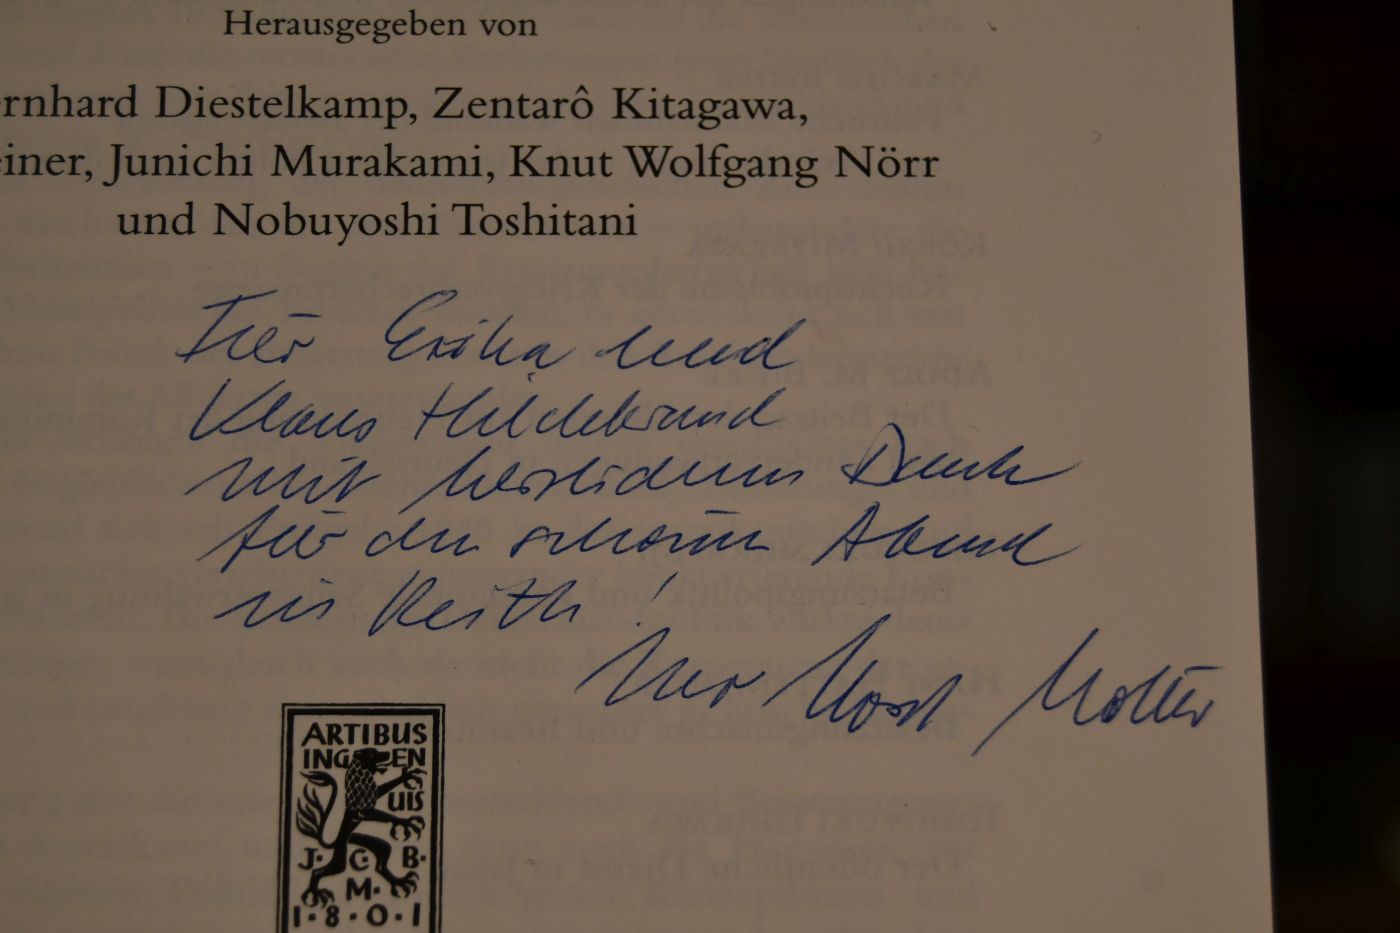 Herausgegeben von
ernhard Diestelkamp, Zentarô Kitagawa,
einer, Junichi Murakami, Knut Wolfgang Nörr
und Nobuyoshi Toshitani
Für Erika und
Klaus Hildebrand
mit herzlichem Dank
für den schönen Abend
in
Ihr Horst Möller
ARTIBUS
INGENUIS
J. C. B.
M.
1.8.0.1